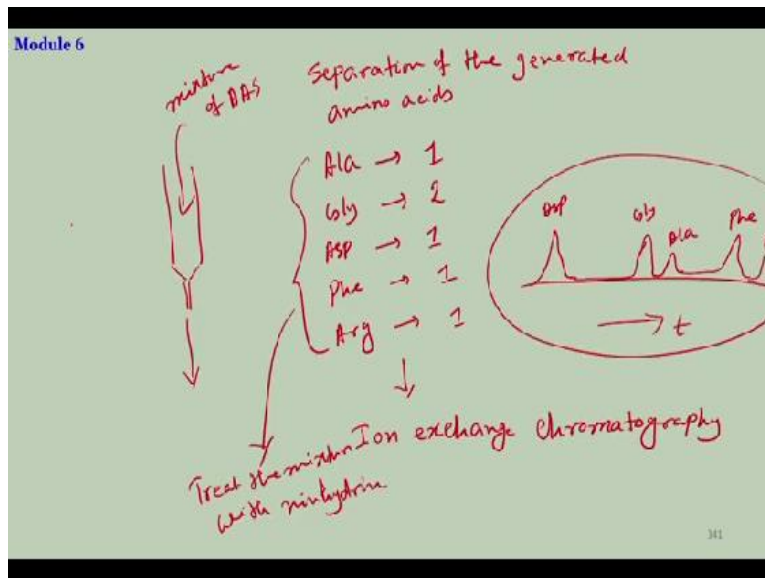 Module 6
mixture
of DAS
Separation of the generated
amino acids
Ala → 1
Gly → 2
ASP → 1
Phe → 1
Arg → 1
Asp
Gly
Ala
Phe
→ t
Ion exchange chromatography
Treat the mixture
with ninhydrin
341